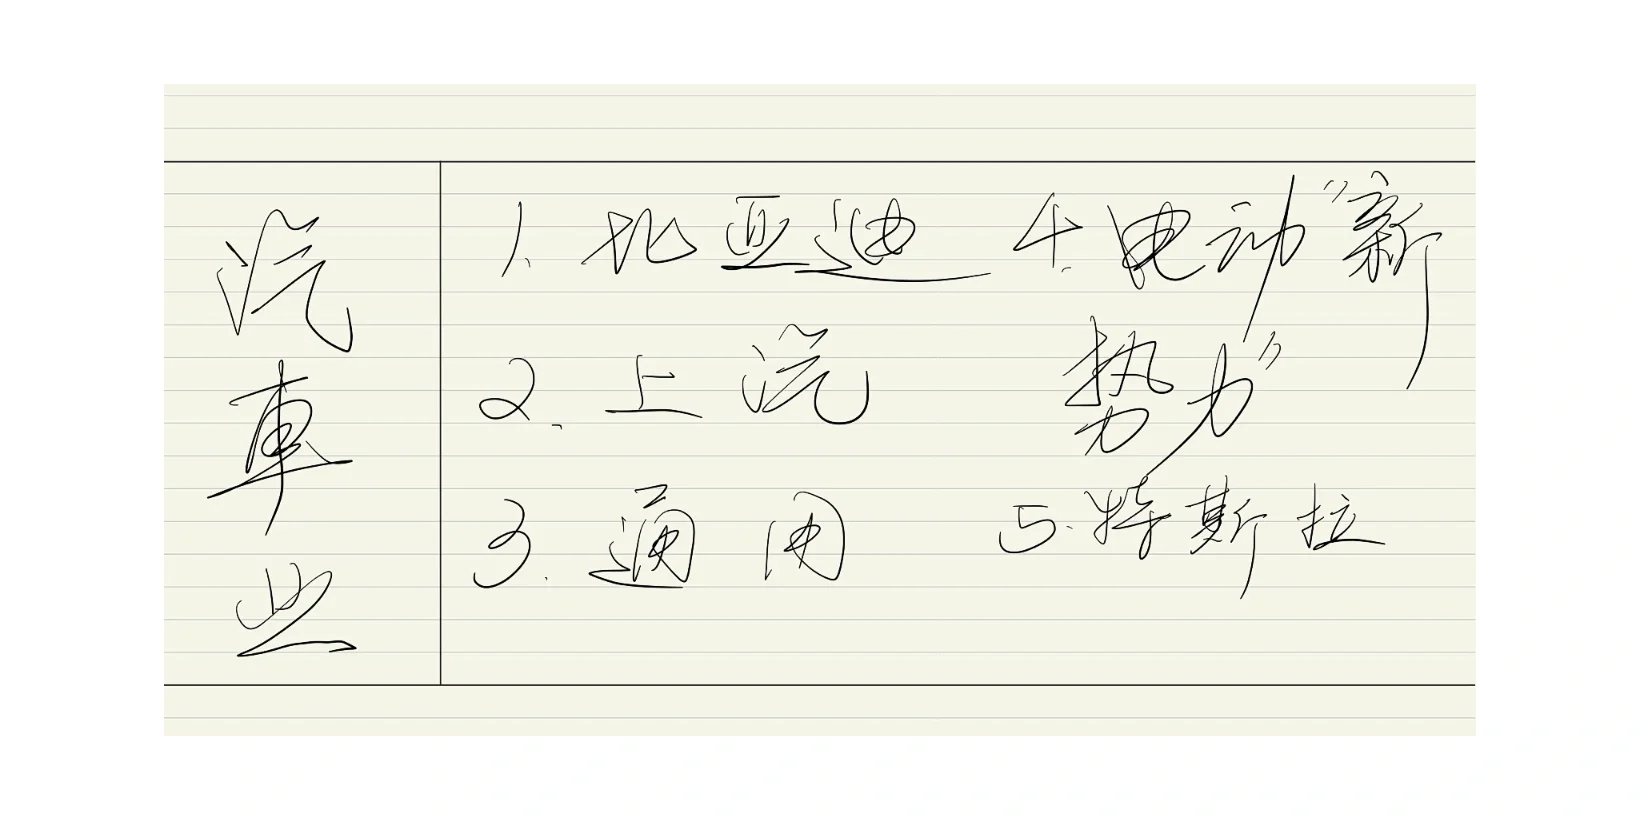 汽
車
业
1. 比亚迪
2. 上汽
3. 通用
4. 电动“新
势力”
5. 特斯拉